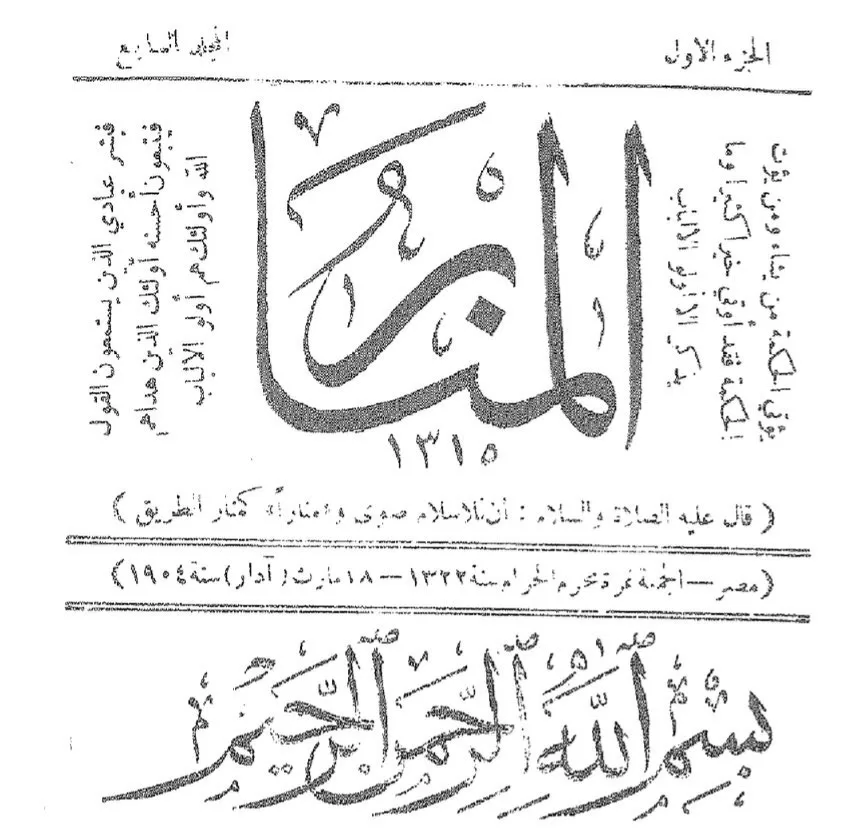 الجزء الاول
المجلد السابع
يؤتي الحكمة من يشاء ومن يؤت
الحكمة فقد أوتي خيرا كثيرا وما
يذكر الا أولو الالباب
المنار
١٣١٥
فبشر عبادي الذين يستمعون القول
فيتبعون أحسنه أولئك الذين هداهم
الله وأولئك هم أولو الالباب
( قال عليه الصلاة والسلام : أن للاسلام صوى و«مناراً» كمنار الطريق )
(مصر – الجمعة غرة محرم الحرام سنة ١٣٢٢ – ١٨ مارث (آدار) سنة ١٩٠٤)
بسم الله الرحمن الرحيم